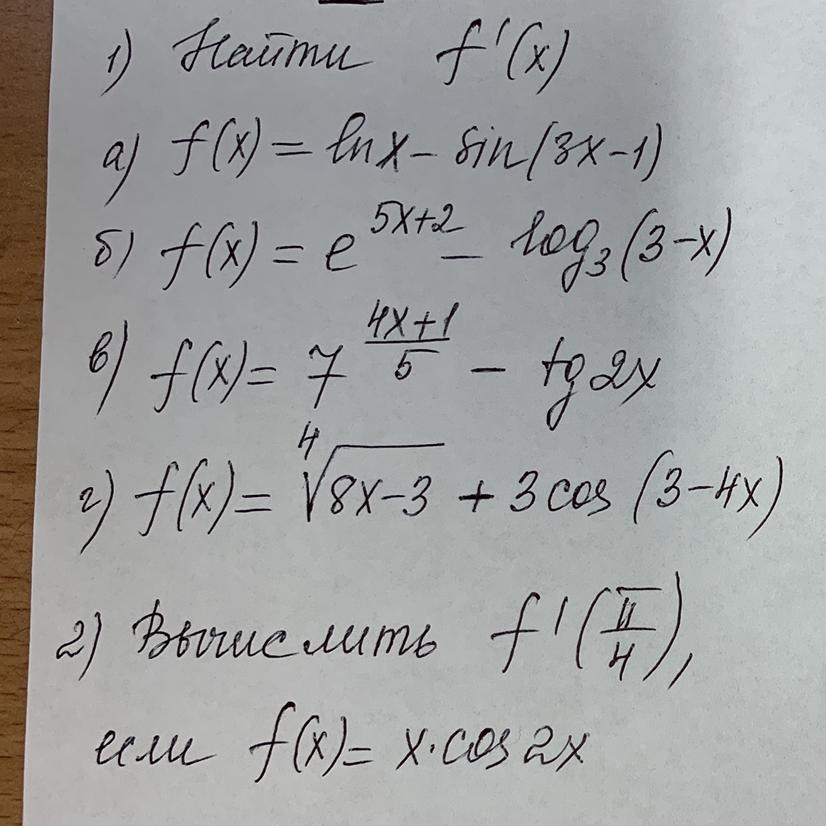 1) Найти f'(x)
а) f(x) = ln x - sin(3x-1)
б) f(x) = e^{5x+2} - log_3(3-x)
в) f(x) = 7^{\frac{4x+1}{5}} - tg 2x
г) f(x) = \sqrt[4]{8x-3} + 3 cos (3-4x)
2) Вычислить f'(\frac{π}{4}),
если f(x) = x·cos 2x